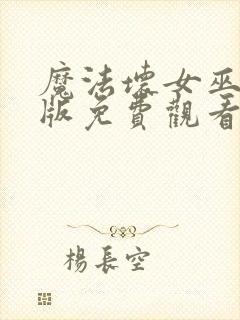 魔法壞女巫
版免費觀看
楊長空